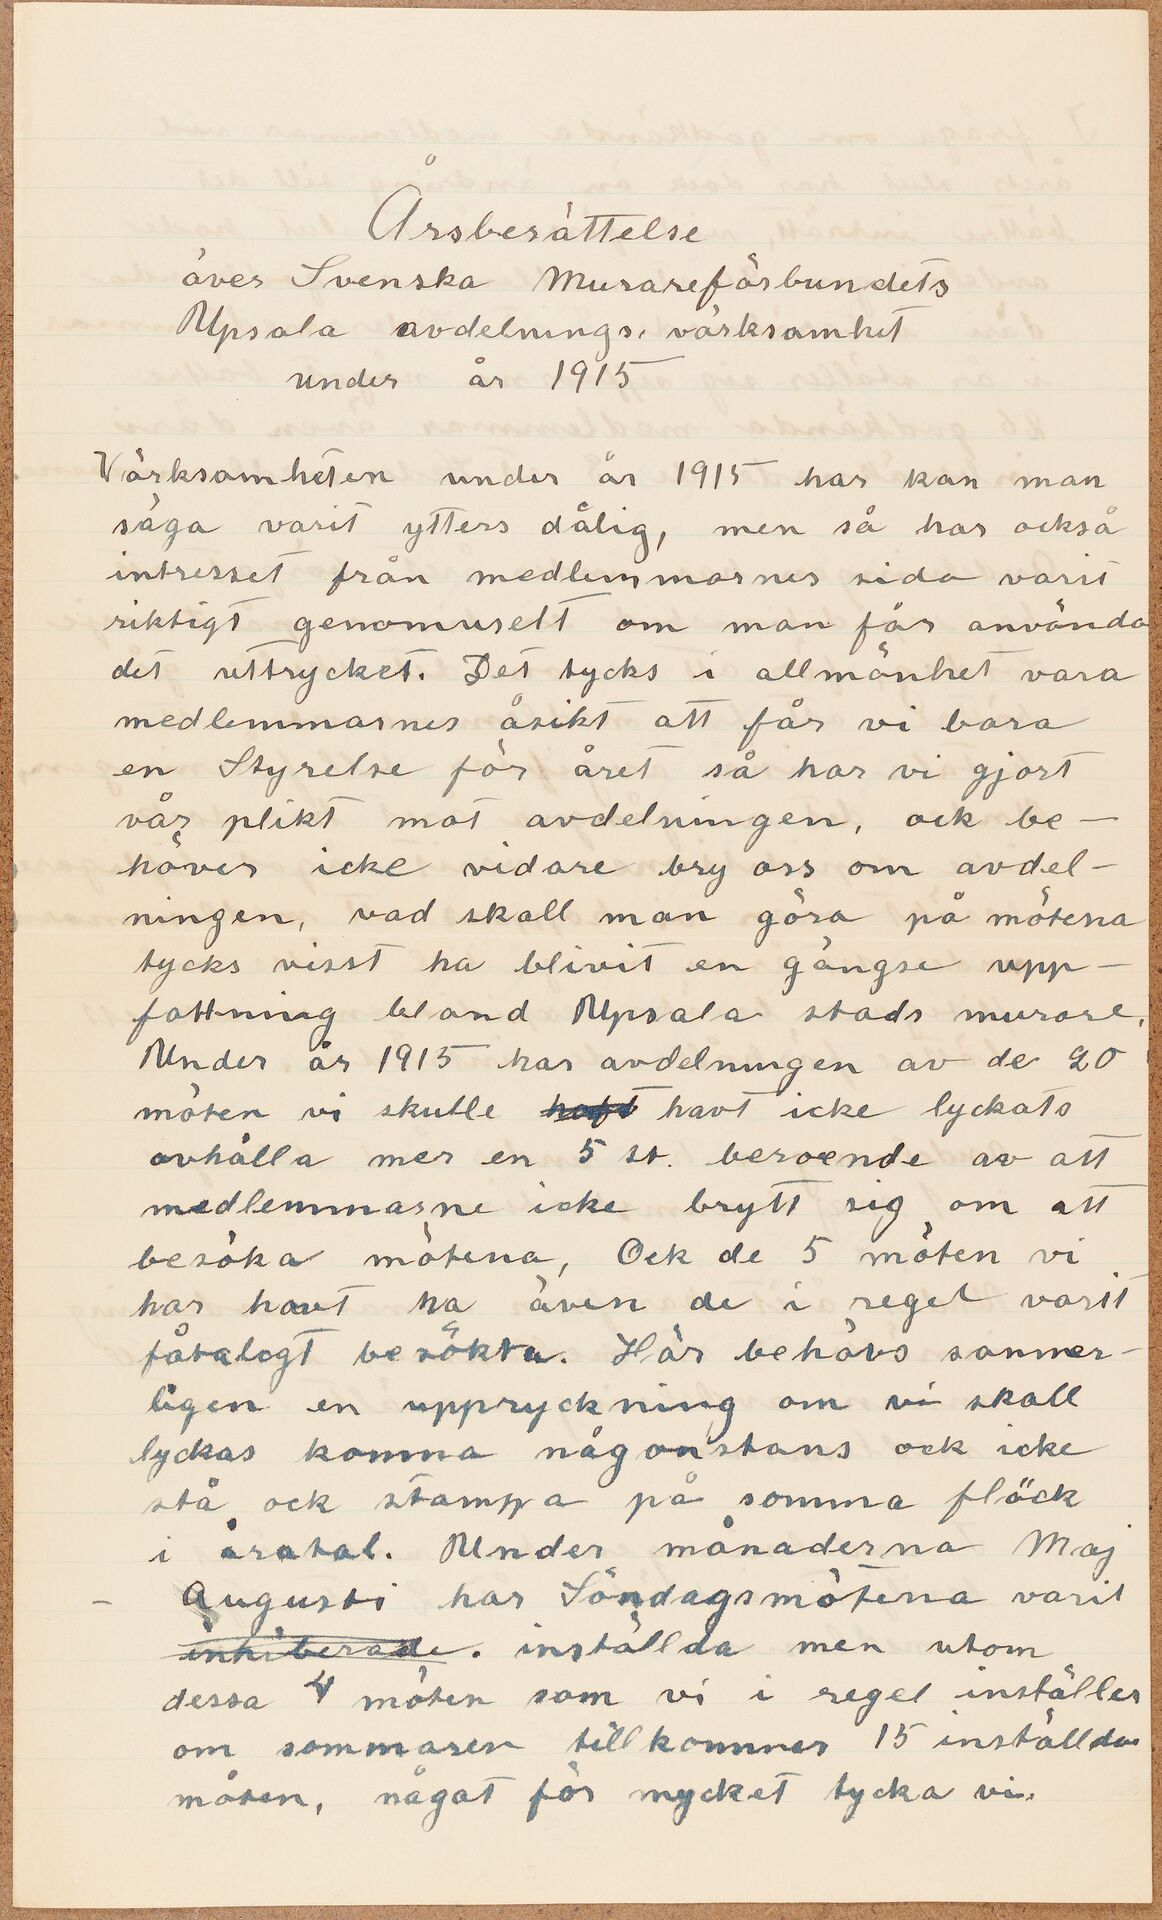 Årsberättelse
över Svenska Murareförbundets
Upsala avdelnings, värksamhet
under år 1915
Värksamheten under år 1915 har kan man
säga varit ytters dålig, men så har också
intresset från medlemmarnes sida varit
riktigt genomuselt om man får använda
det uttrycket. Det tycks i allmänhet vara
medlemmarnes åsikt att får vi bara
en Styrelse för året så har vi gjort
vår plikt mot avdelningen, ock be-
höver icke vidare bry oss om avdel-
ningen, vad skall man göra på mötena
tycks visst ha blivit en gängse upp-
fattning bland Upsala stads murare.
Under år 1915 har avdelningen av de 20
möten vi skulle haft havt icke lyckats
avhålla mer en 5 st. beroende av att
medlemmarne icke brytt sig om att
besöka mötena, Ock de 5 möten vi
har havt ha även de i regel varit
fåtalogt besökta. Här behövs sannner-
ligen en uppryckning om vi skall
lyckas komma någonstans ock icke
stå ock stampa på samma fläck
i åratal. Under månaderna Maj
- Augusti har Söndagsmötena varit
inhiberade. inställda men utom
dessa 4 möten som vi i regel inställer
om sommaren tillkommer 15 inställda
möten, något för mycket tycka vi.